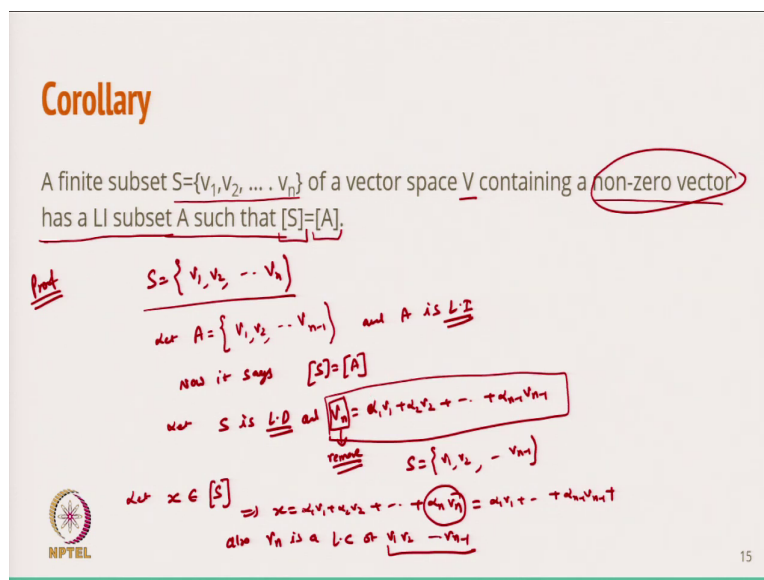 Corollary
A finite subset S={v₁,v₂, ... . vₙ} of a vector space V containing a non-zero vector
has a LI subset A such that [S]=[A].
Proof
S={ v₁, v₂, -- vₙ}
Let A={ v₁, v₂, -- vₙ₋₁} and A is L.I
Now it says [S]=[A]
Let S is L.D and vₙ = α₁v₁ + α₂v₂ + -- + αₙ₋₁vₙ₋₁
remove S={v₁, v₂, - vₙ₋₁}
Let x ∈ [S]
⇒ x = α₁v₁ + α₂v₂ + -- + αₙvₙ = α₁v₁ + - + αₙ₋₁vₙ₋₁ +
also vₙ is a L.C of v₁ v₂ - vₙ₋₁
NPTEL
15